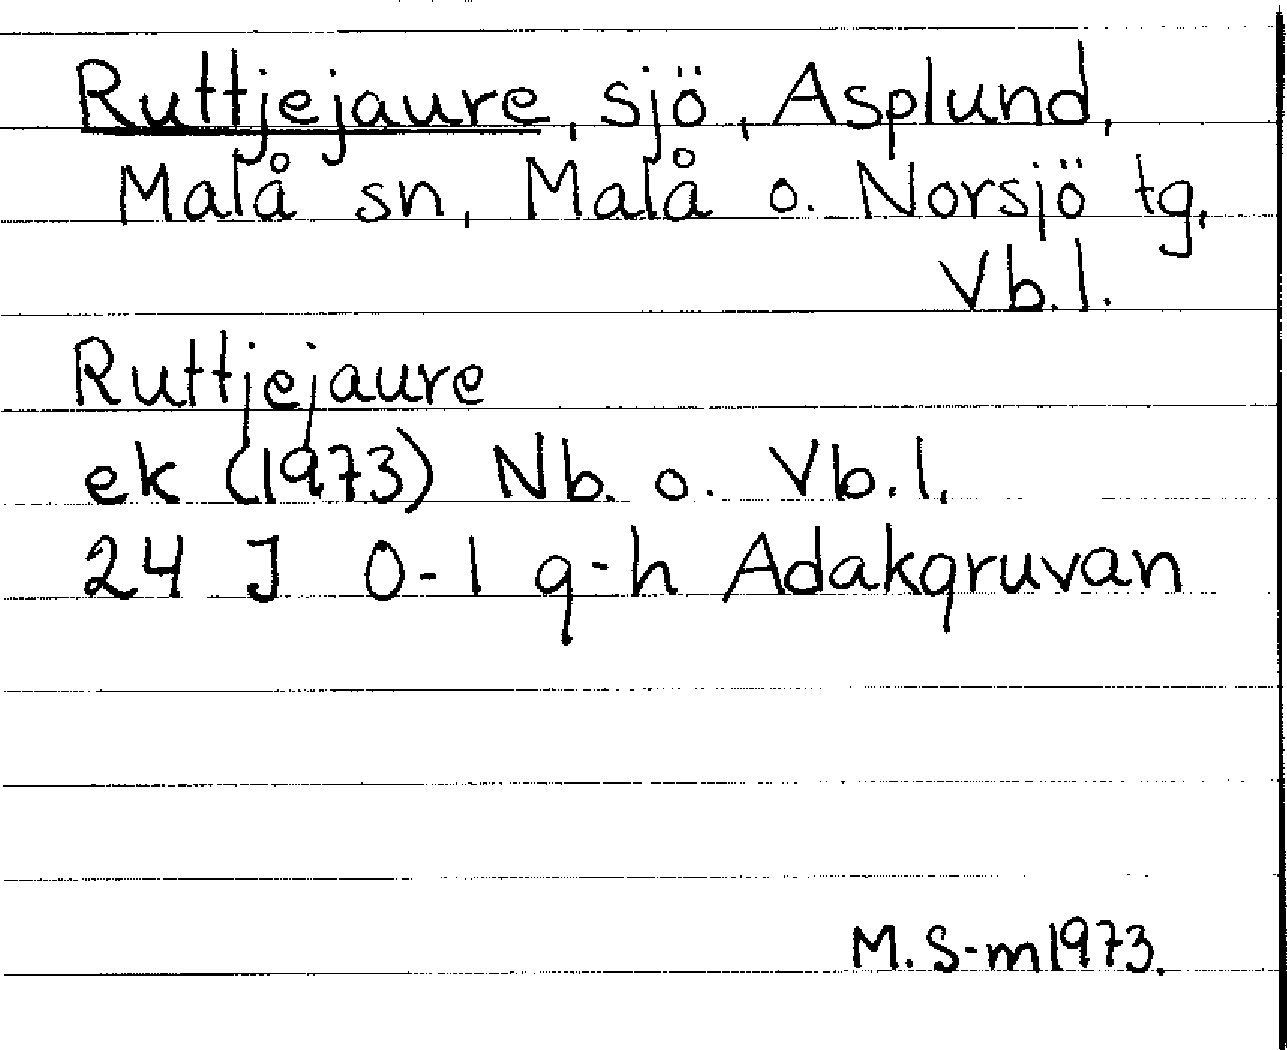 Ruttjejaure, sjö, Asplund,
Malå sn, Malå o. Norsjö tg,
Vb.l.
Ruttjejaure
ek (1973) Nb. o. Vb.l.
24 J 0-1 g-h Adakgruvan
M.S-m1973.